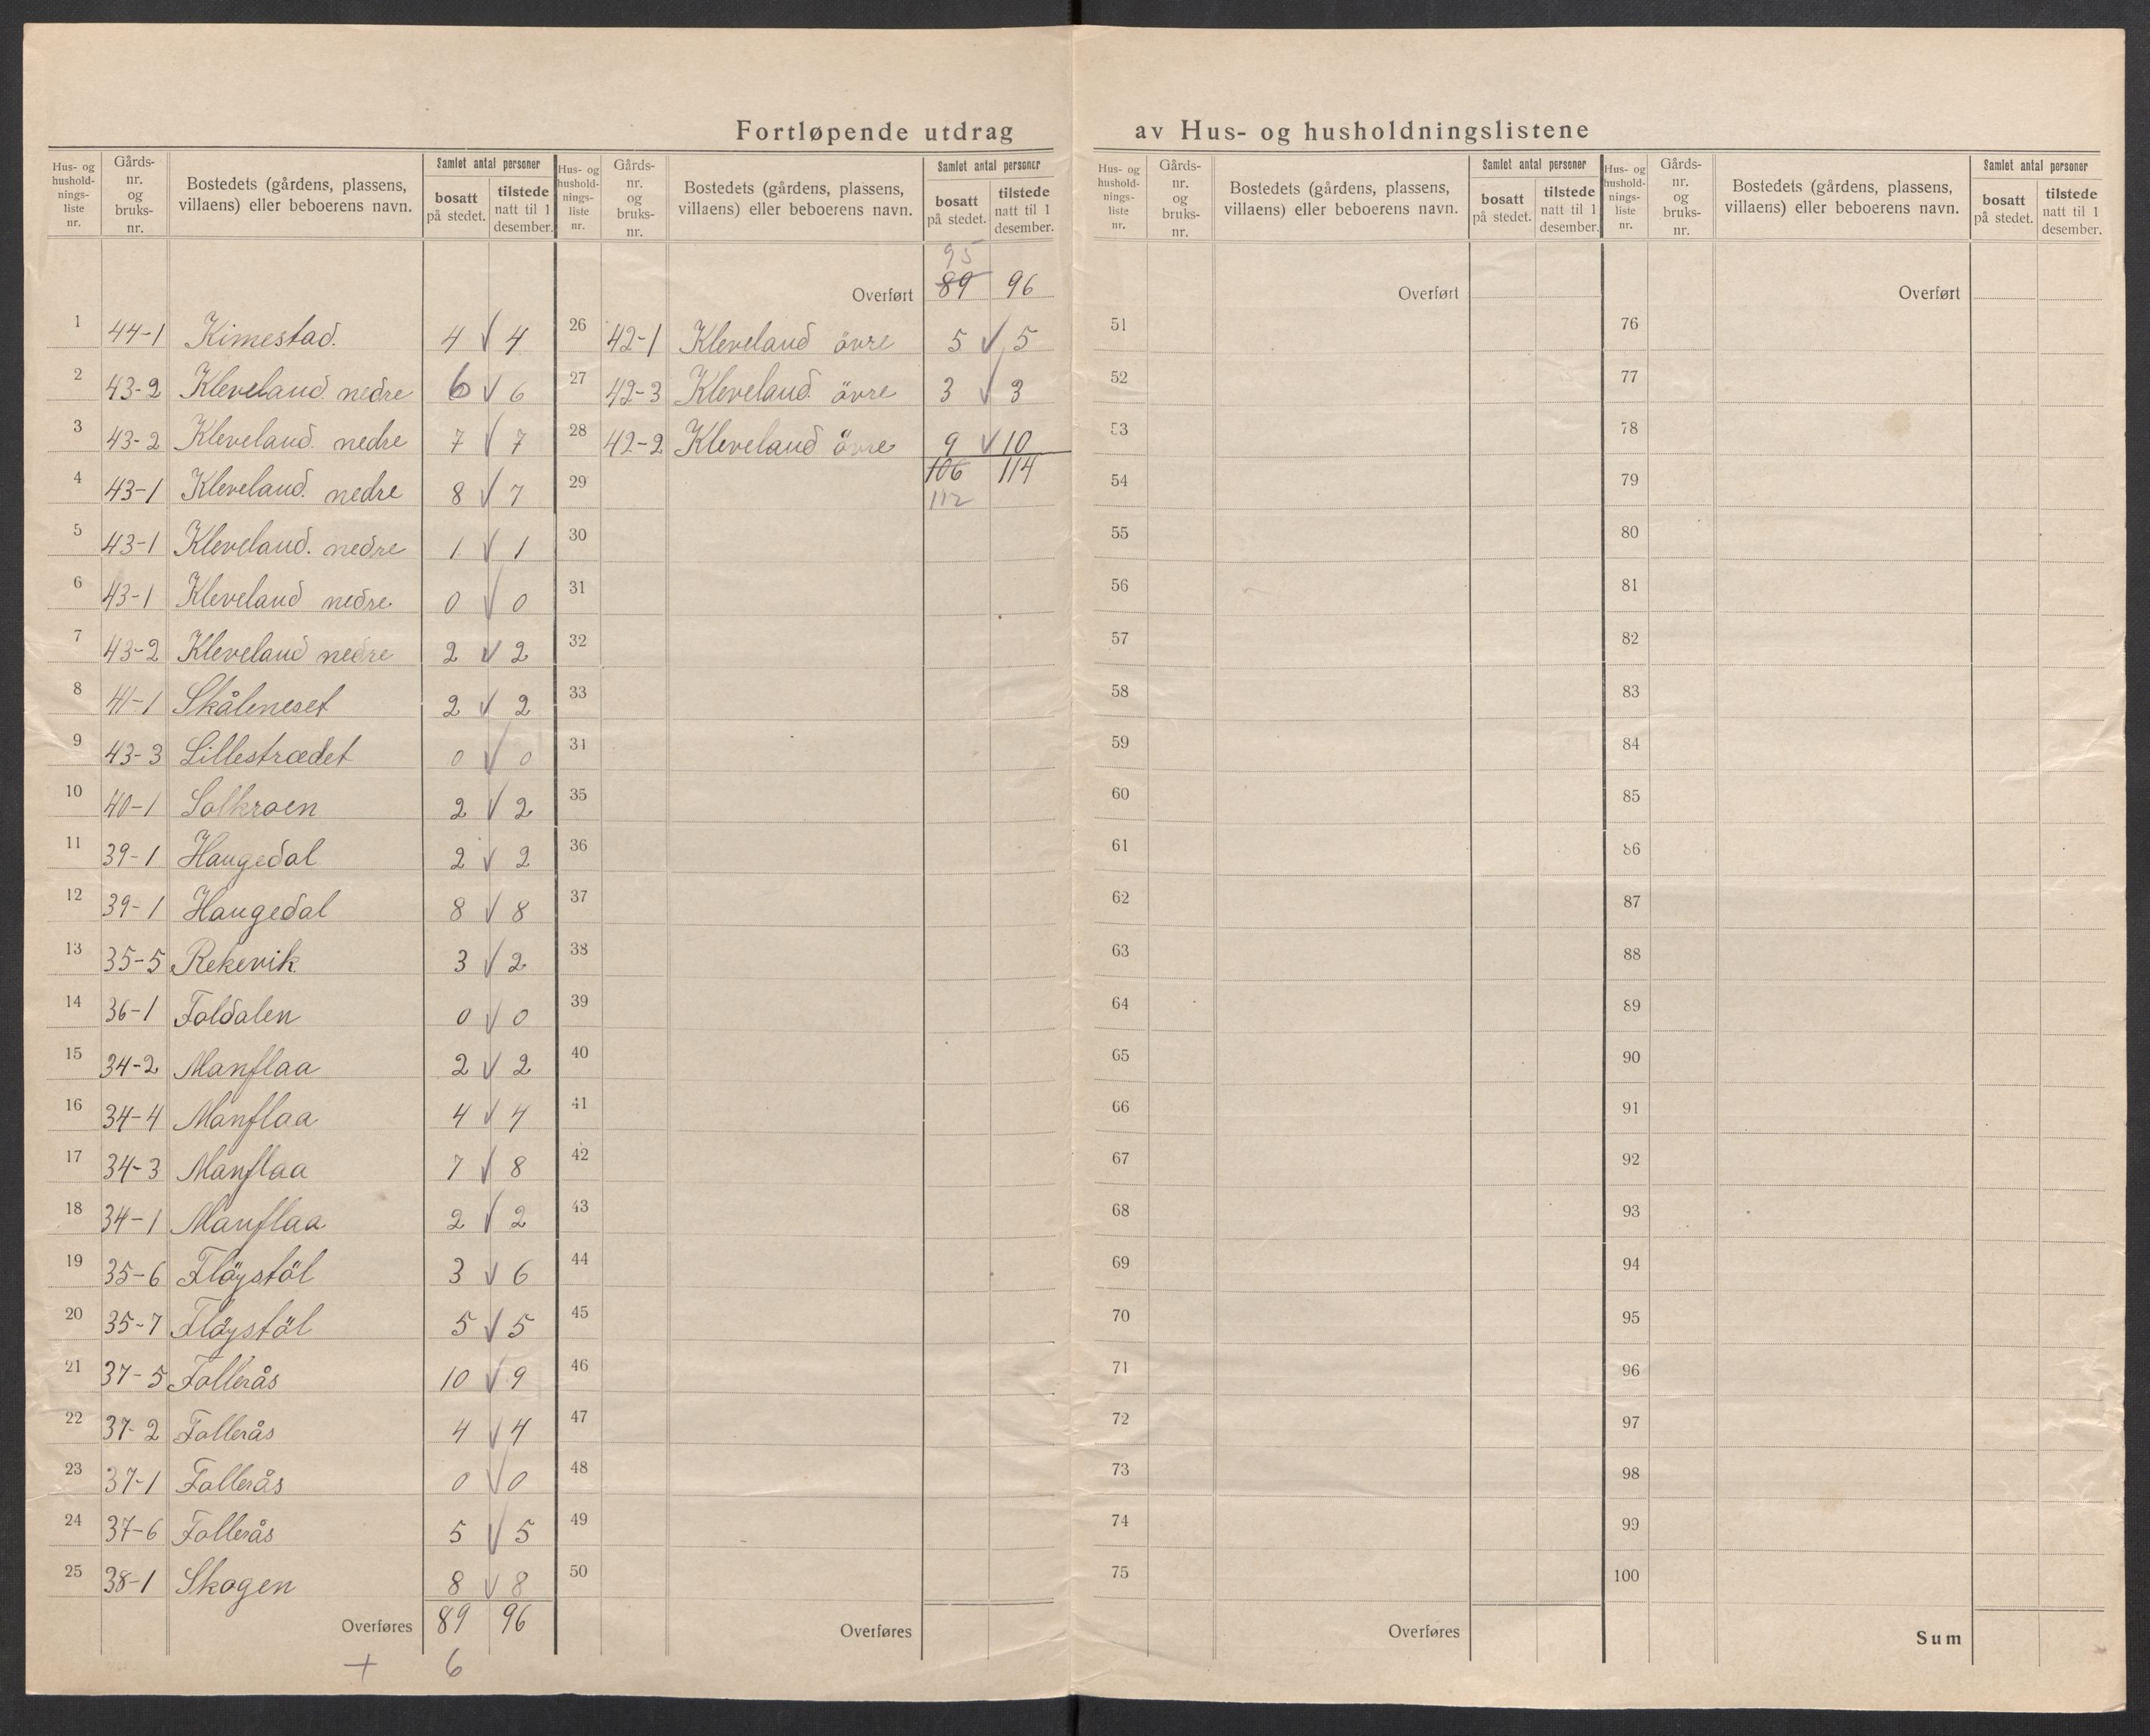 Fortløpende utdrag av Hus- og husholdningslistene
Hus- og hushold-nings-liste nr. Gårds-nr. og bruks-nr. Bostedets (gårdens, plassens, villaens) eller beboerens navn. Samlet antal personer bosatt på stedet. tilstede natt til 1 desember.
1 44-1 Kimestad. 4 √ 4
2 43-2 Kleveland nedre 6 √ 6
3 43-2 Kleveland. nedre 7 √ 7
4 43-1 Kleveland. nedre 8 √ 7
5 43-1 Kleveland. nedre 1 √ 1
6 43-1 Kleveland nedre 0 √ 0
7 43-2 Kleveland nedre 2 √ 2
8 41-1 Skåleneset 2 √ 2
9 43-3 Lillestrædet 0 √ 0
10 40-1 Solkroen 2 √ 2
11 39-1 Haugedal 2 √ 2
12 39-1 Haugedal 8 √ 8
13 35-5 Rekevik 3 √ 2
14 36-1 Foldalen 0 √ 0
15 34-2 Manflaa 2 √ 2
16 34-4 Manflaa 4 √ 4
17 34-3 Manflaa 7 √ 8
18 34-1 Manflaa 2 √ 2
19 35-6 Flöystöl 3 √ 6
20 35-7 Flöystöl 5 √ 5
21 37-5 Follerås 10 √ 9
22 37-2 Follerås 4 √ 4
23 37-1 Follerås 0 √ 0
24 37-6 Follerås 5 √ 5
25 38-1 Skogen 8 √ 8
Overføres 89 96
+ 6
Hus- og hushold-nings-liste nr. Gårds-nr. og bruks-nr. Bostedets (gårdens, plassens, villaens) eller beboerens navn. Samlet antal personer bosatt på stedet. tilstede natt til 1 desember.
95
Overført 89 96
26 42-1 Kleveland övre 5 √ 5
27 42-3 Kleveland övre 3 √ 3
28 42-2 Kleveland övre 9 √ 10
29 106 114
112
30
31
32
33
31
35
36
37
38
39
40
41
42
43
44
45
46
47
48
49
50
Overføres
Hus- og hushold-nings-liste nr. Gårds-nr. og bruks-nr. Bostedets (gårdens, plassens, villaens) eller beboerens navn. Samlet antal personer bosatt på stedet. tilstede natt til 1 desember.
Overført
51
52
53
54
55
56
57
58
59
60
61
62
63
64
65
66
67
68
69
70
71
72
73
74
75
Overføres
Hus- og hushold-nings-liste nr. Gårds-nr. og bruks-nr. Bostedets (gårdens, plassens, villaens) eller beboerens navn. Samlet antal personer bosatt på stedet. tilstede natt til 1 desember.
Overført
76
77
78
79
80
81
82
83
84
85
86
87
88
89
90
91
92
93
94
95
96
97
98
99
100
Sum